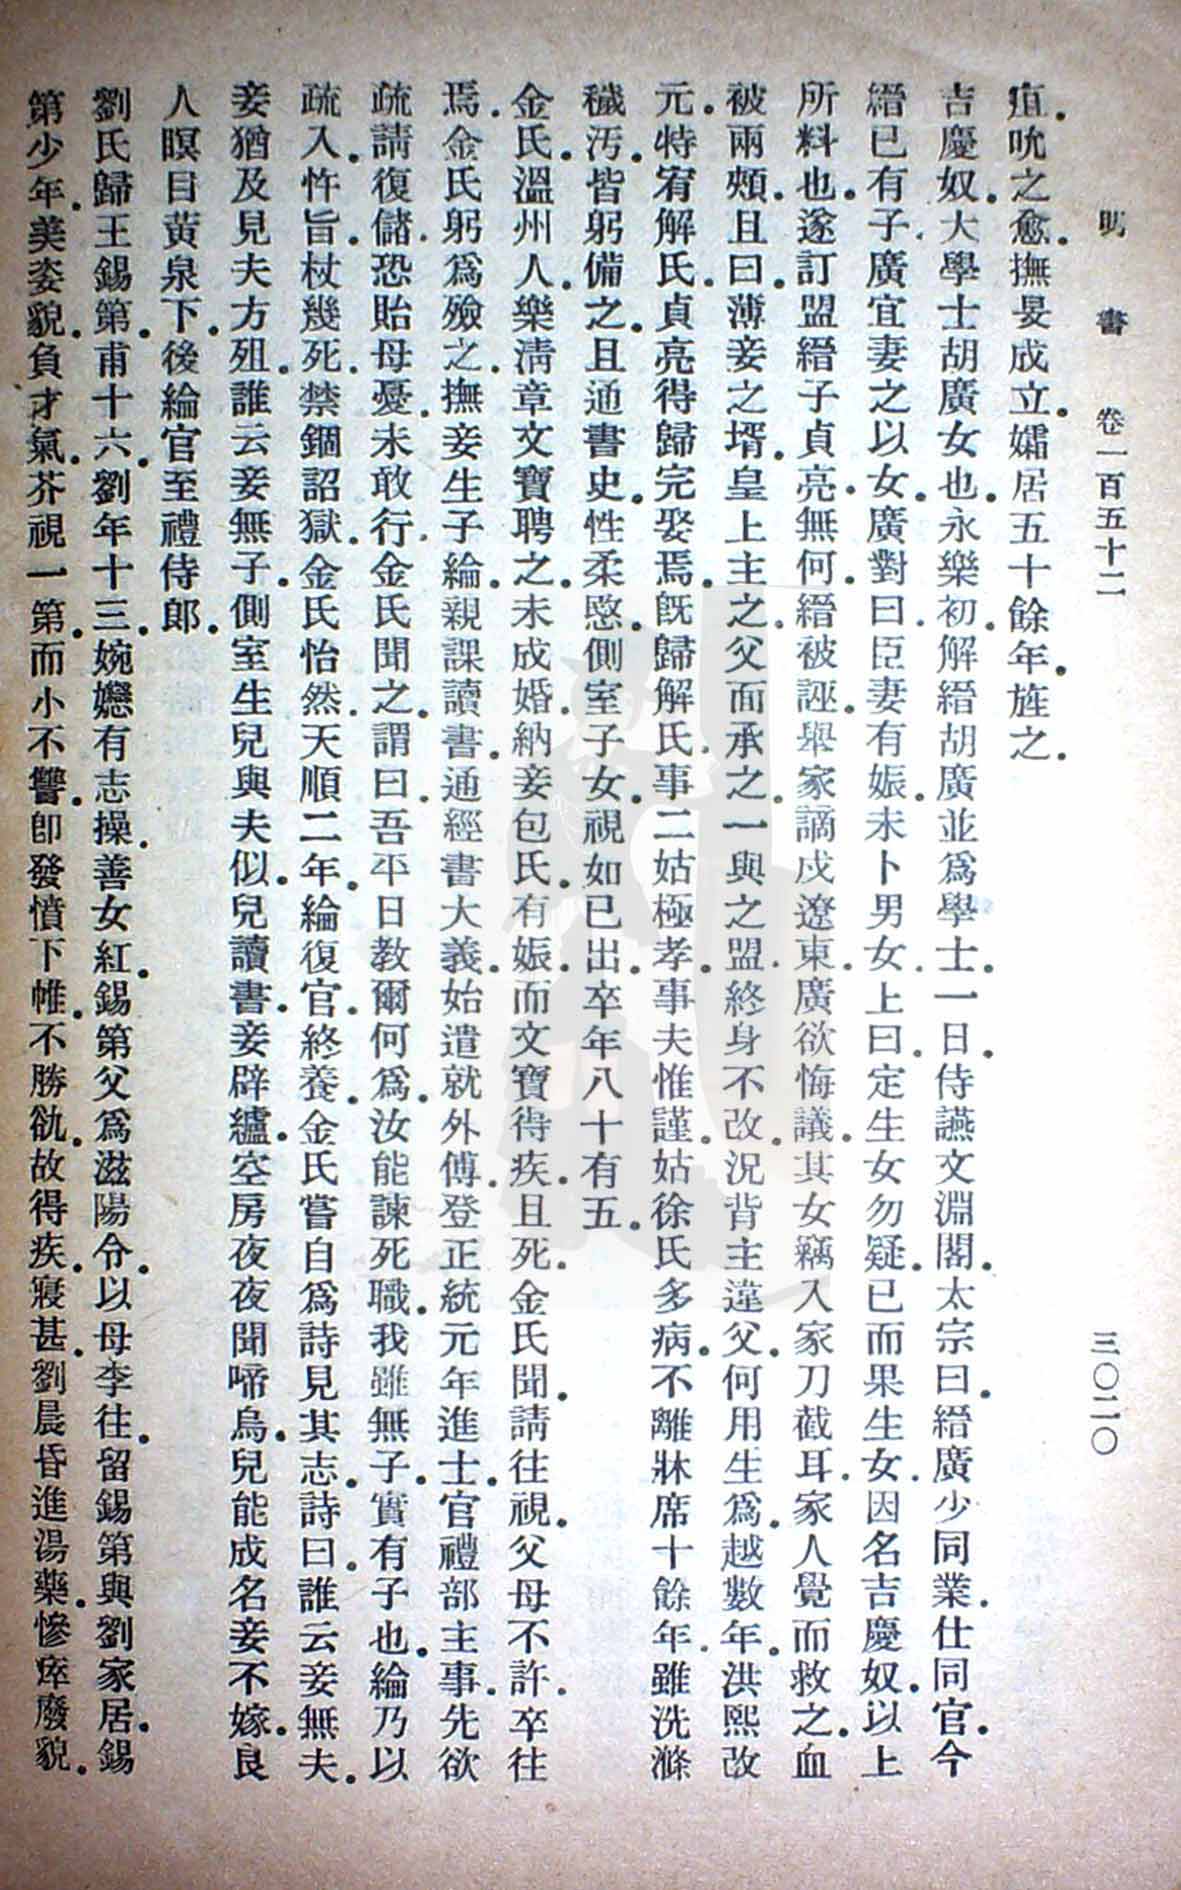 明書　卷一百五十二　三〇二〇
疽．吮之愈．撫旻成立．孀居五十餘年．旌之．
吉慶奴．大學士胡廣女也．永樂初．解縉胡廣並爲學士．一日．侍讌文淵閣．太宗曰．縉廣少同業．仕同官．今
縉已有子．廣宜妻之以女．廣對曰．臣妻有娠．未卜男女．上曰．定生女勿疑．已而果生女．因名吉慶奴．以上
所料也．遂訂盟縉子貞亮．無何．縉被誣．舉家謫戍遼東．廣欲悔議．其女竊入家刀截耳．家人覺而救之．血
被兩頰．且曰．薄妾之壻．皇上主之．父面承之．一與之盟．終身不改．況背主違父．何用生爲．越數年．洪熙改
元．特宥解氏．貞亮得歸完娶焉．旣歸解氏．事二姑極孝．事夫惟謹．姑徐氏多病．不離牀席十餘年．雖洗滌
穢汚．皆躬備之．且通書史．性柔愍．側室子女．視如己出．卒年八十有五．
金氏．溫州人．樂清章文寶聘之．未成婚．納妾包氏．有娠．而文寶得疾．且死．金氏聞．請往視．父母不許．卒往
焉．金氏躬爲殮之．撫妾生子綸．親課讀書．通經書大義．始遣就外傅．登正統元年進士．官禮部主事．先欲
疏請復儲．恐貽母憂．未敢行．金氏聞之．謂曰．吾平日教爾何爲．汝能諫死職．我雖無子．實有子也．綸乃以
疏入．忤旨．杖幾死．禁錮詔獄．金氏怡然．天順二年．綸復官終養．金氏嘗自爲詩見其志．詩曰．誰云妾無夫．
妾猶及見夫方殂．誰云妾無子．側室生兒與夫似．兒讀書．妾辟纑．空房夜夜聞啼烏．兒能成名妾不嫁．良
人瞑目黃泉下．後綸官至禮侍郎．
劉氏歸王錫第．甫十六．劉年十三．婉嬺有志操．善女紅．錫第父爲滋陽令．以母李往．留錫第與劉家居．錫
第少年．美姿貌．負才氣．芥視一第．而小不讐．卽發憤下帷．不勝劬．故得疾．寢甚．劉晨昏進湯藥．慘瘁廢貌．